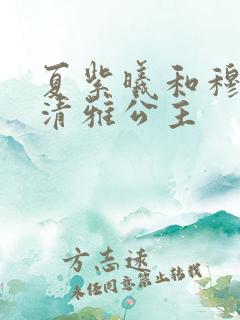 夏紫曦和穆
清雅公主
方志远
未经同意禁止转载